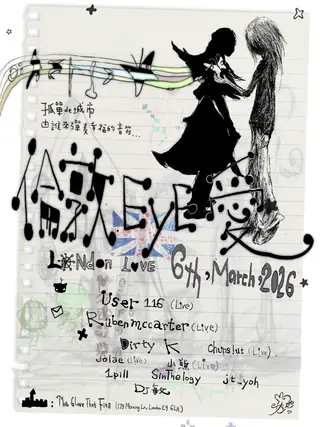 孤單de城市
由誰來彈奏幸福的音符...
倫敦EYE愛
LoNdon Love 6th, March, 2026
User 116 (Live)
Rubenmccarter (Live)
Dirty K Chunslut (Live)
jolae (Live) 小熊 (Live)
1pill SinThology jt_yoh
DJ敏
: The Glove That Fits (179 Morning Ln, London E9 6LH)